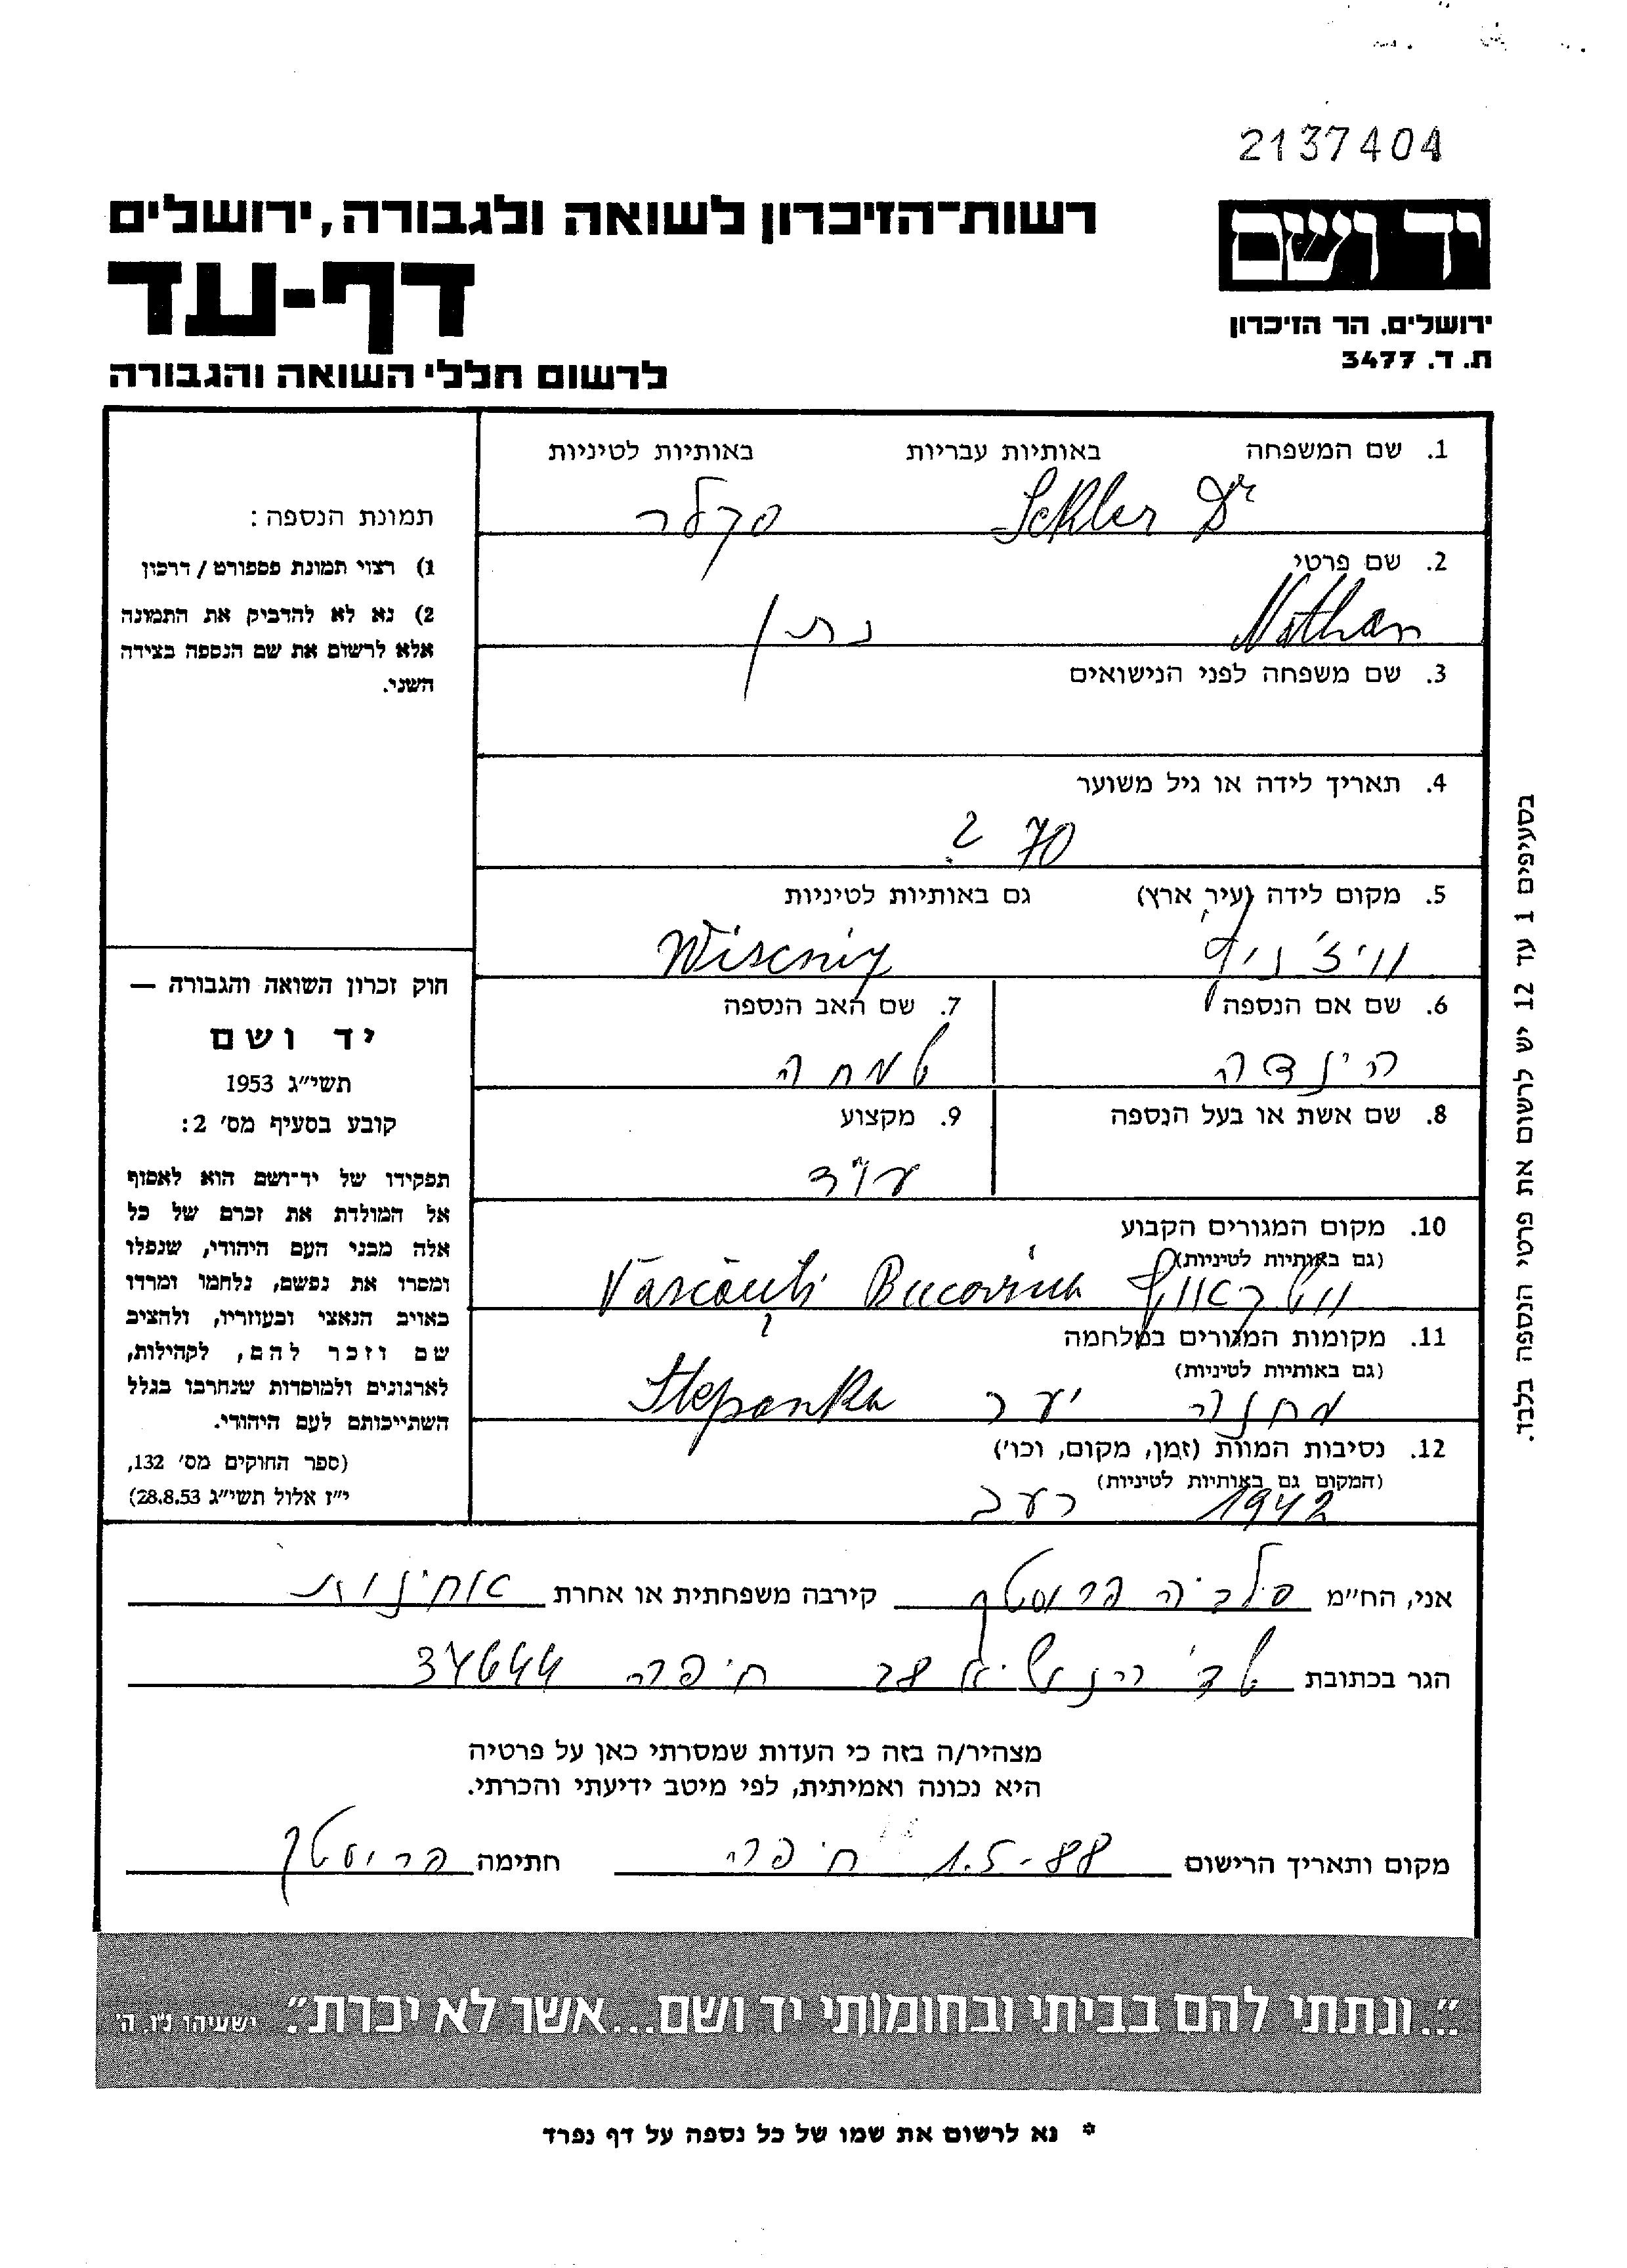 2137404
רשות־הזיכרון לשואה ולגבורה, ירושלים
יד ושם
דף-עד
ירושלים, הר הזיכרון
ת. ד. 3477
לרשום חללי השואה והגבורה
1. שם המשפחה באותיות עבריות באותיות לטיניות
Dr Sekler סקלר
2. שם פרטי
Nathan נתן
3. שם משפחה לפני הנישואים
4. תאריך לידה או גיל משוער
70 ?
5. מקום לידה (עיר, ארץ) גם באותיות לטיניות
וויז'ניץ Wiscniy
6. שם אם הנספה
הינדה
7. שם האב הנספה
שמחה
8. שם אשת או בעל הנספה
9. מקצוע
עו"ד
10. מקום המגורים הקבוע
(גם באותיות לטיניות)
וושקאוץ Văscăuți Bucovina
11. מקומות המגורים במלחמה
(גם באותיות לטיניות)
מחנה יער Stepanka
12. נסיבות המוות (זמן, מקום, וכו')
(המקום גם באותיות לטיניות)
1942 רעב
תמונת הנספה:
1) רצוי תמונת פספורט / דרכון
2) נא לא להדביק את התמונה
אלא לרשום את שם הנספה בצידה
השני.
חוק זכרון השואה והגבורה —
יד ושם
תשי״ג 1953
קובע בסעיף מס׳ 2:
תפקידו של יד־ושם הוא לאסוף
אל המולדת את זכרם של כל
אלה מבני העם היהודי, שנפלו
ומסרו את נפשם, נלחמו ומרדו
באויב הנאצי ובעוזריו, ולהציב
שם וזכר להם, לקהילות,
לארגונים ולמוסדות שנחרבו בגלל
השתייכותם לעם היהודי.
(ספר החוקים מס׳ 132,
י״ז אלול תשי״ג 28.8.53)
בסעיפים 1 עד 12 יש לרשום את פרטי הנספה בלבד.
אני, הח״מ סלביה פרוסטק קירבה משפחתית או אחרת אחינות
הגר בכתובת שד' הנשיא 28 חיפה 34644
מצהיר/ה בזה כי העדות שמסרתי כאן על פרטיה
היא נכונה ואמיתית, לפי מיטב ידיעתי והכרתי.
מקום ותאריך הרישום 1.5-88 חיפה חתימה פרוסטק
״...ונתתי להם בביתי ובחומותי יד ושם...אשר לא יכרת״. ישעיהו נ״ו, ה׳
* נא לרשום את שמו של כל נספה על דף נפרד